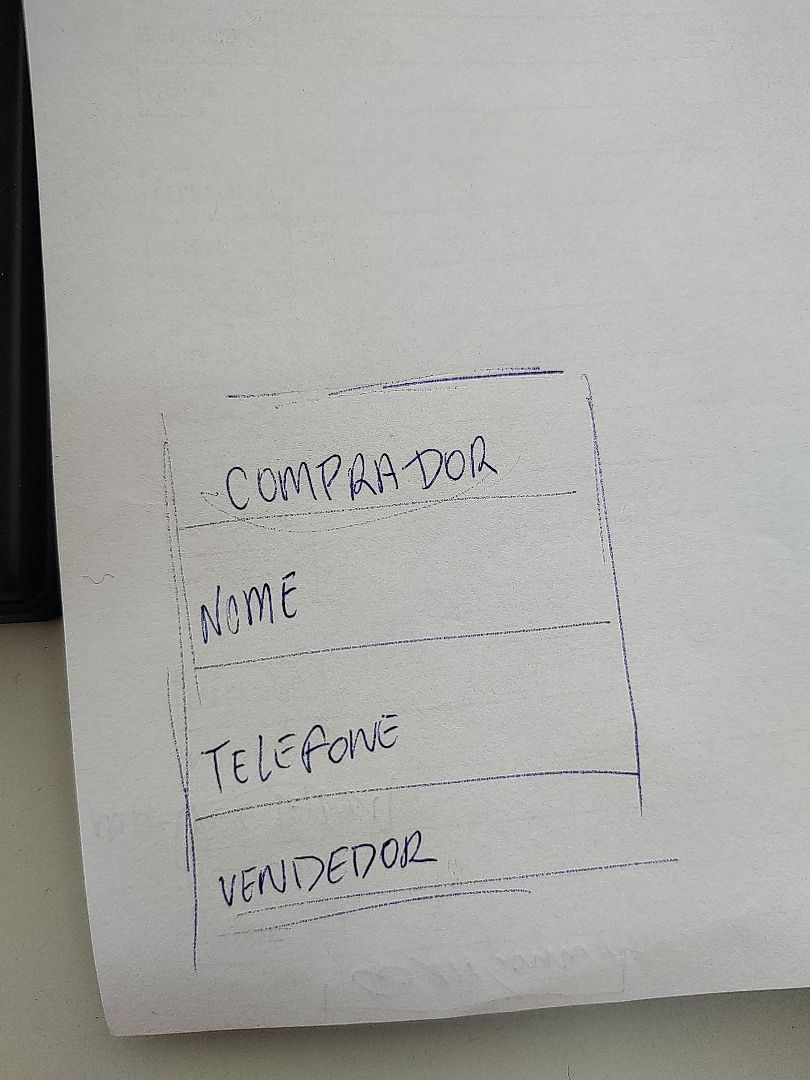 COMPRADOR
NOME
TELEFONE
VENDEDOR